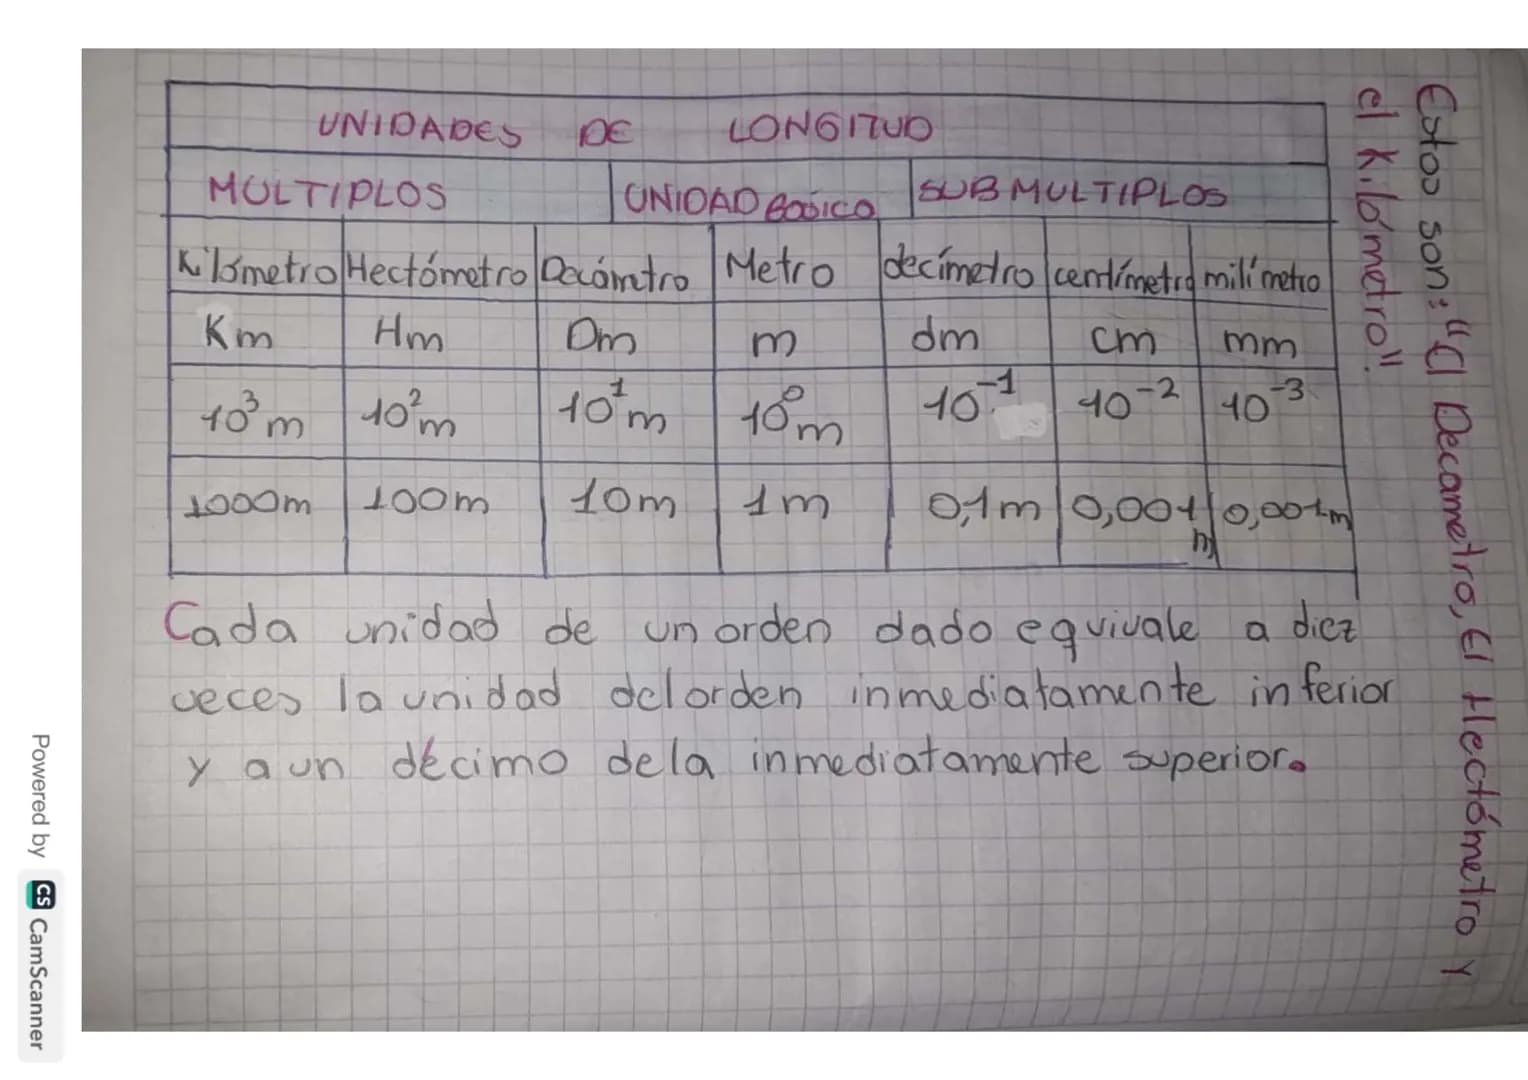 UNIDADES DE LONGITUD
MULTIPLOS UNIDAD Básica SUBMULTIPLOS
Kilómetro Hectómetro Decámetro Metro decímetro centímetro milímetro
Km Hm Dm m dm cm mm
10³m 10²m 10¹m 10⁰m 10⁻¹ 10⁻² 10⁻³
1000m 100m 10m 1m 0,1m 0,001m 0,001m
Cada unidad de un orden dado equivale a diez
veces la unidad del orden inmediatamente inferior
y a un décimo de la inmediatamente superior.
Estos son: "El Decametro, El Hectómetro y
el Kilómetro".
Powered by CS CamScanner